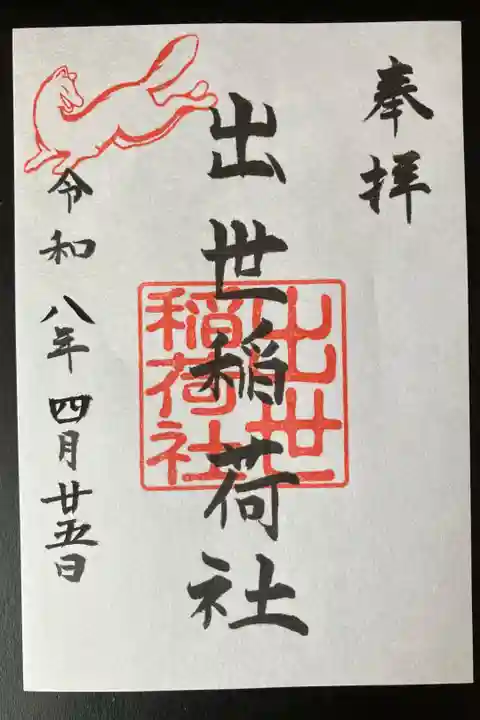 奉拝
出世稲荷社
出世
稲荷社
令和八年四月廿五日